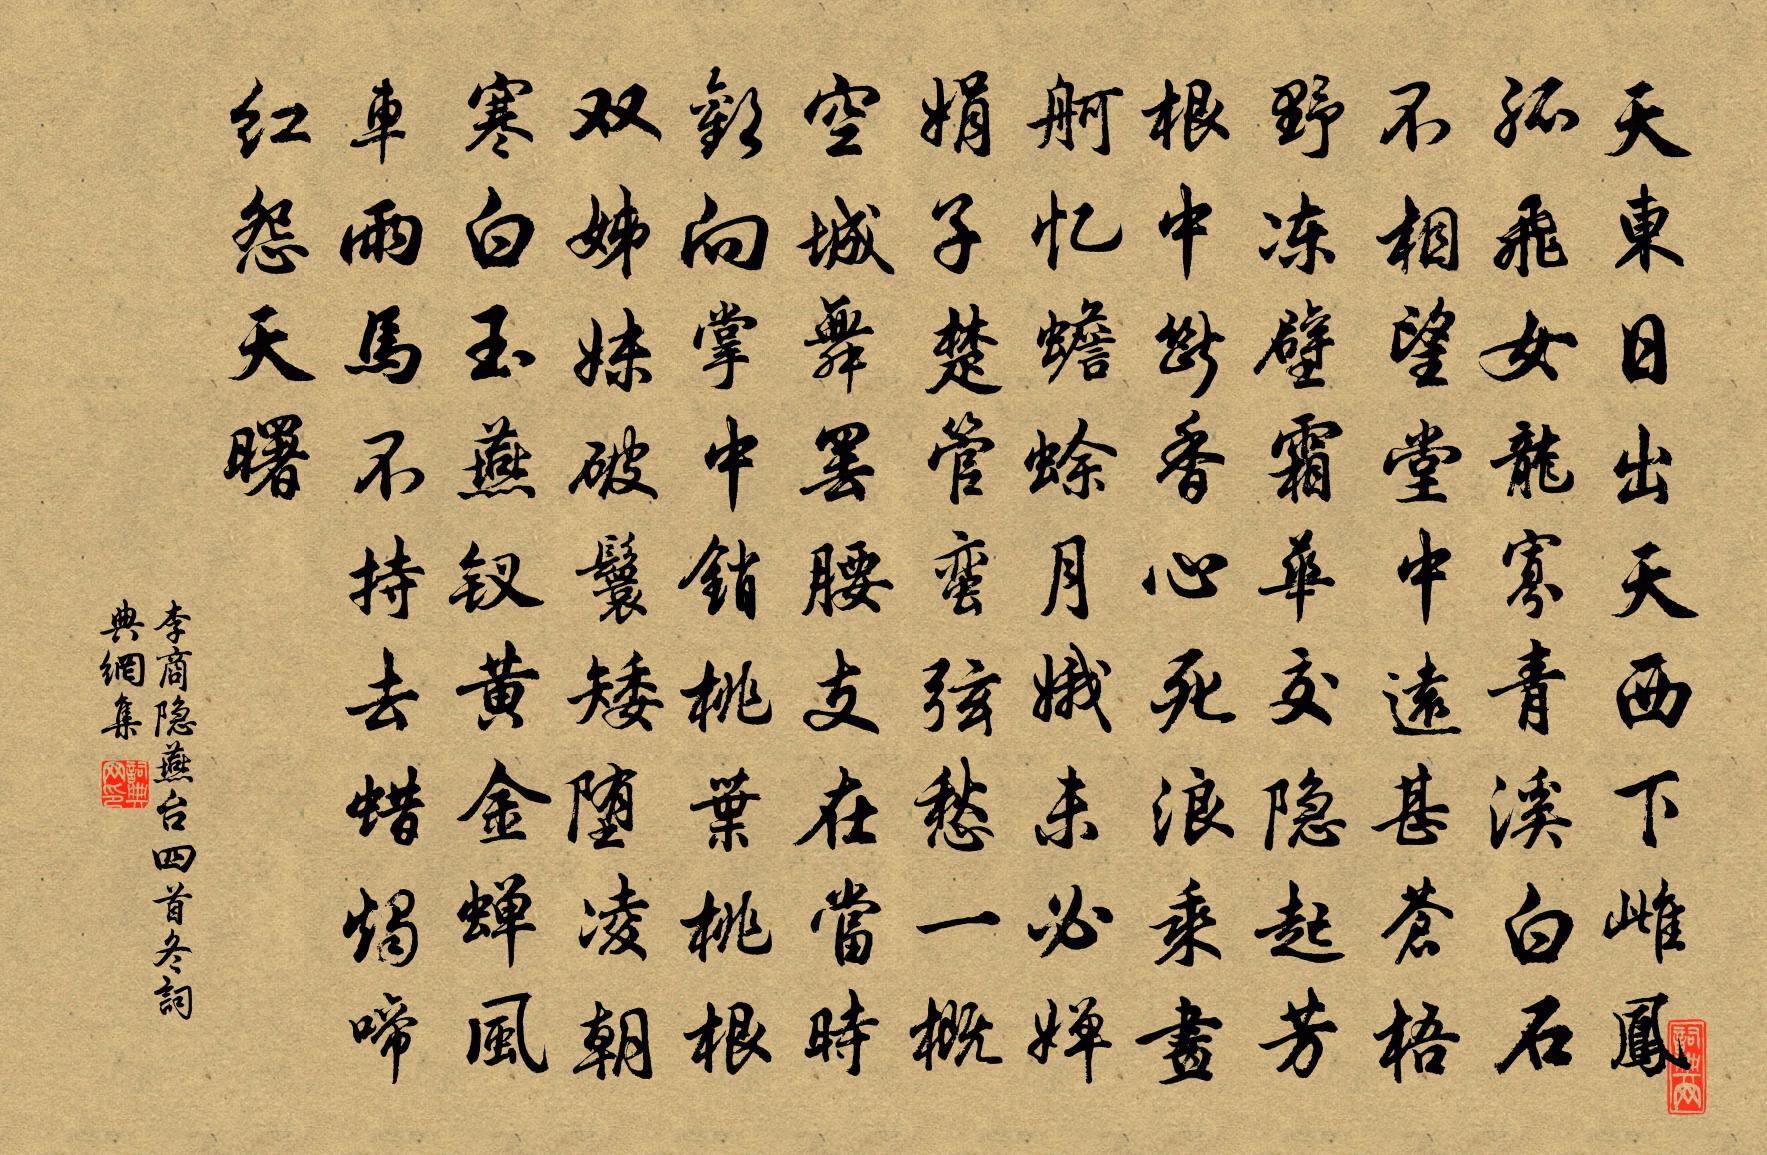 天東日出天西下雌鳳
孤飛女龍寡青溪白石
不相望堂中遠甚蒼梧
野冻壁霜華交隐起芳
根中斷香心死浪乘畫
舸忆蟾蜍月娥未必婵
娟子楚管蛮弦愁一概
空城舞罢腰支在當時
歡向掌中銷桃葉桃根
双姊妹破鬟矮堕凌朝
寒白玉燕钗黄金蝉風
車雨馬不持去蜡燭啼
红怨天曙
李商隐燕台四首冬詞
典網集
詞典网印
詞典网